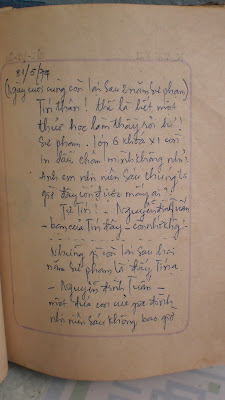 31/5/79
(Ngày cuối cùng còn lại sau 2 năm sư phạm)
Tín thân! thế là hết một
thuở học làm thầy rồi hử!
Sư phạm - lớp 6 khóa XI còn
in dấu chân mình không nhỉ?
Anh em nên niên sáu chúng ta
giờ đây còn được mấy ai?
Từ Tín! - Nguyễn Đình Tuấn
- bạn của Tín đây - còn nhớ không!
Những gì còn lại sau hai
năm sư phạm là đây Tín ạ
- Nguyễn Đình Tuấn -
một đứa con của gia đình
nên niên sáu không bao giờ